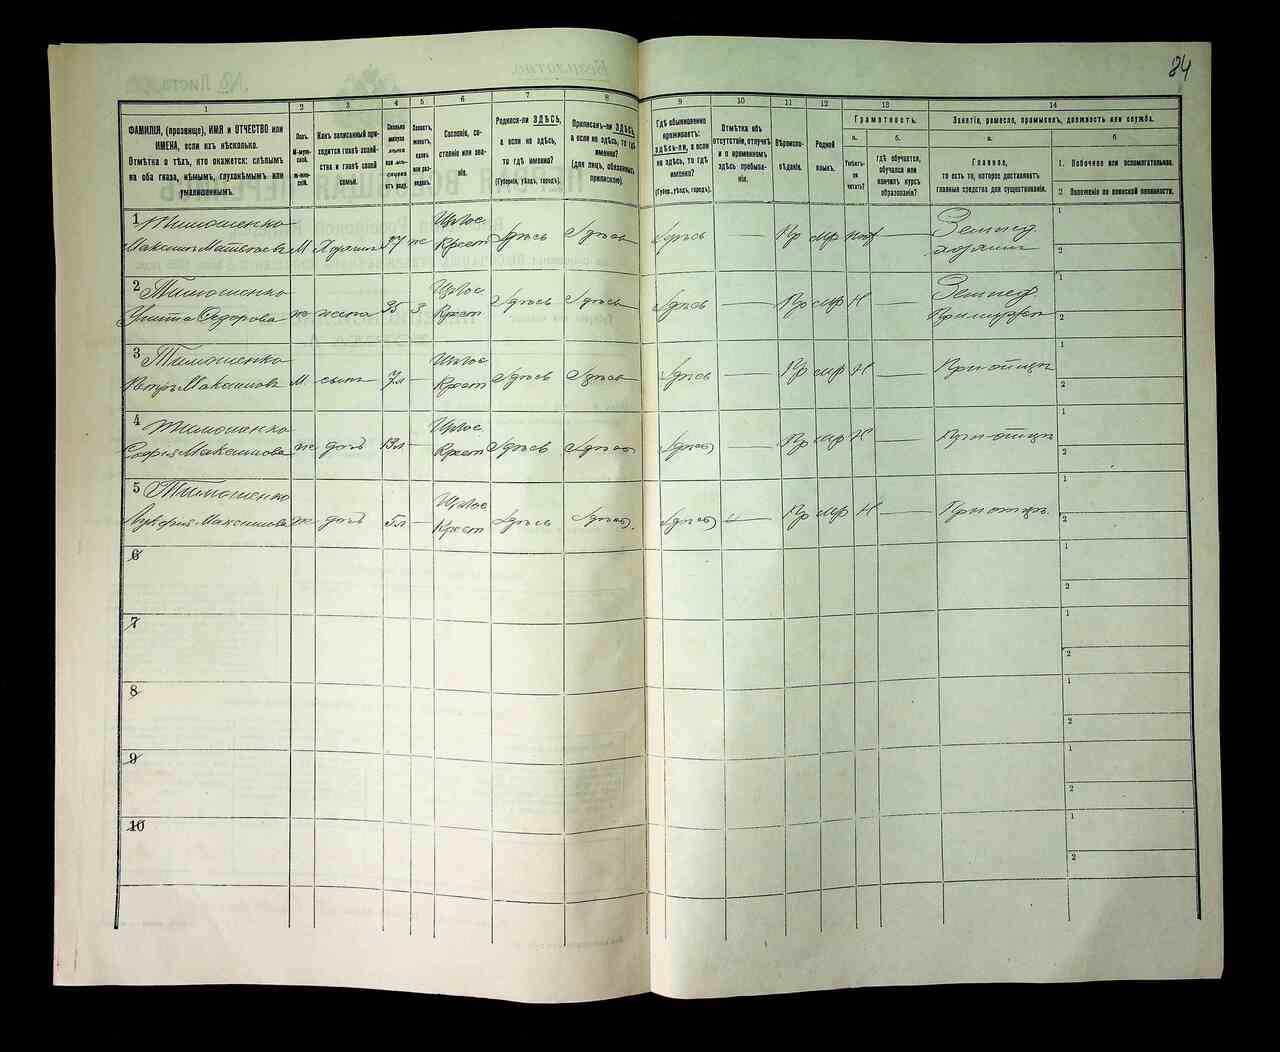 84
1 2 3 4 5 6 7 8 9 10 11 12 13 14
ФАМИЛІЯ, (прозвище), ИМЯ и ОТЧЕСТВО или
ИМЕНА, если ихъ нѣсколько.
Отмѣтка о тѣхъ, кто окажется: слѣпымъ
на оба глаза, нѣмымъ, глухонѣмымъ или
умалишеннымъ.
Полъ.
М-мужской.
Ж-женскій.
Какъ записанный приходится
главѣ хозяйства
и главѣ своей
семьи.
Сколько
минуло
лѣтъ
или мѣсяцевъ
отъ роду.
Холостъ,
женатъ,
вдовъ
или разведенъ.
Сословіе, состояніе
или званіе.
Родился-ли ЗДѢСЬ,
а если не здѣсь,
то гдѣ именно?
(Губернія, уѣздъ, городъ).
Приписанъ-ли ЗДѢСЬ,
а если не здѣсь, то гдѣ
именно?
(для лицъ, обязанныхъ
припискою).
Гдѣ обыкновенно
проживаетъ:
ЗДѢСЬ-ЛИ, а если
не здѣсь, то гдѣ
именно?
(Губерн., уѣздъ, городъ).
Отмѣтка объ
отсутствіи, отлучкѣ
и о временномъ
здѣсь пребываніи.
Вѣроисповѣданіе.
Родной
языкъ.
Грамотность.
а.
Умѣетъ-ли
читать?
б.
гдѣ обучается,
обучался или
кончилъ курсъ
образованія?
Занятіе, ремесло, промыселъ, должность или служба.
а.
Главное,
то есть то, которое доставляетъ
главныя средства для существованія.
б
1. Побочное или вспомогательное.
2 Положеніе по воинской повинности.
1 Тимошенко Максимъ М Хозяинъ Крест Здѣсь Здѣсь Здѣсь — Пр мр — Землед хозяинъ 1 2
2 Тимошенко Федорова ж жена 35 З Крест Здѣсь Здѣсь Здѣсь — Пр мр Н — Землед 1 2
3 Тимошенко Петръ Максимовъ М сынъ 7л — Крест Здѣсь Здѣсь Здѣсь — Пр мр Н — При отцѣ 1 2
4 Тимошенко Софія Максимова ж дочь — Крест Здѣсь Здѣсь Здѣсь — Пр мр Н — При отцѣ 1 2
5 Тимошенко Максимова ж дочь 5л — Крест Здѣсь Здѣсь Здѣсь — Пр мр Н — При отцѣ 1 2
6 1 2
7 1 2
8 1 2
9 1 2
10 1 2